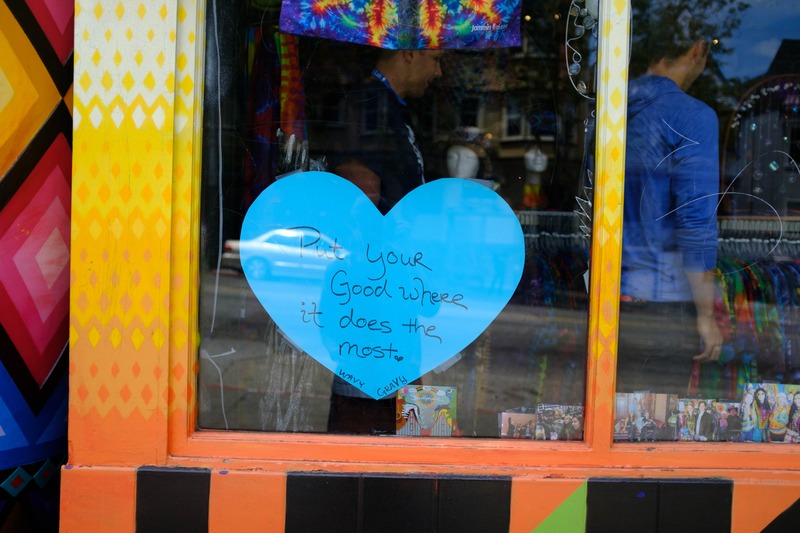 Put your
Good where
it does the
most.
WAVY GRAVY